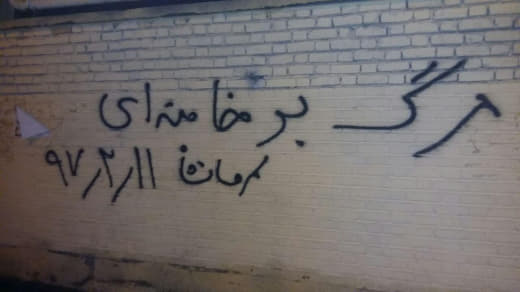 مرگ بر خامنه‌ای
کرمانشاه ۹۷/۲/۱۱